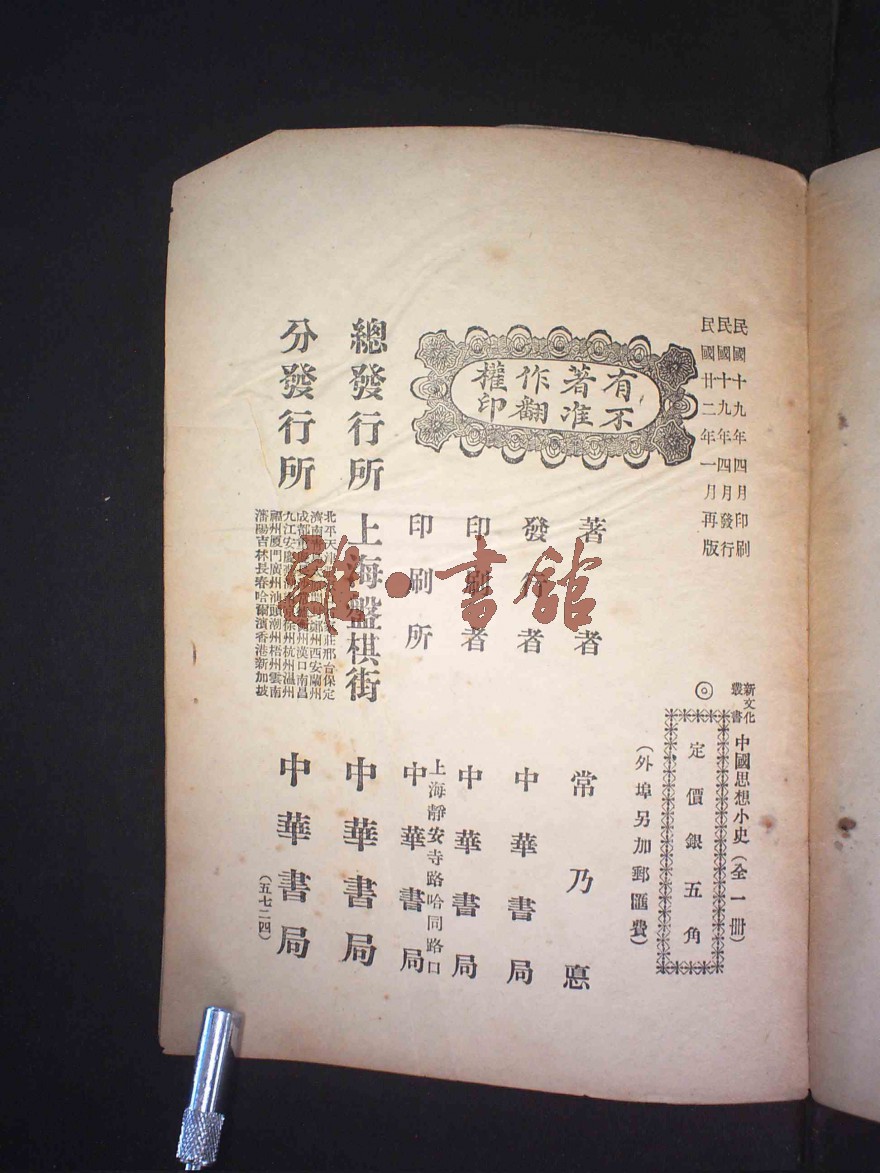 民國十九年四月印刷
民國十九年四月發行
民國廿二年一月再版
新文化叢書 中國思想小史（全一冊）
◎定價銀五角
（外埠另加郵匯費）
有不
著准
作翻
權印
著者 常乃悳
發行者 中華書局
印刷者 中華書局
上海靜安寺路哈同路口
印刷所 中華書局
總發行所 上海盤棋街 中華書局
分發行所
北平天津 莊邢台保定
濟南 鄭州西安蘭州
成都 州漢口南昌
九江安慶 徐州杭州温州
福州厦門廣州汕頭潮州梧州雲南
瀋陽吉林長春哈爾濱香港新加坡
中華書局
（五七二四）
雜·書館